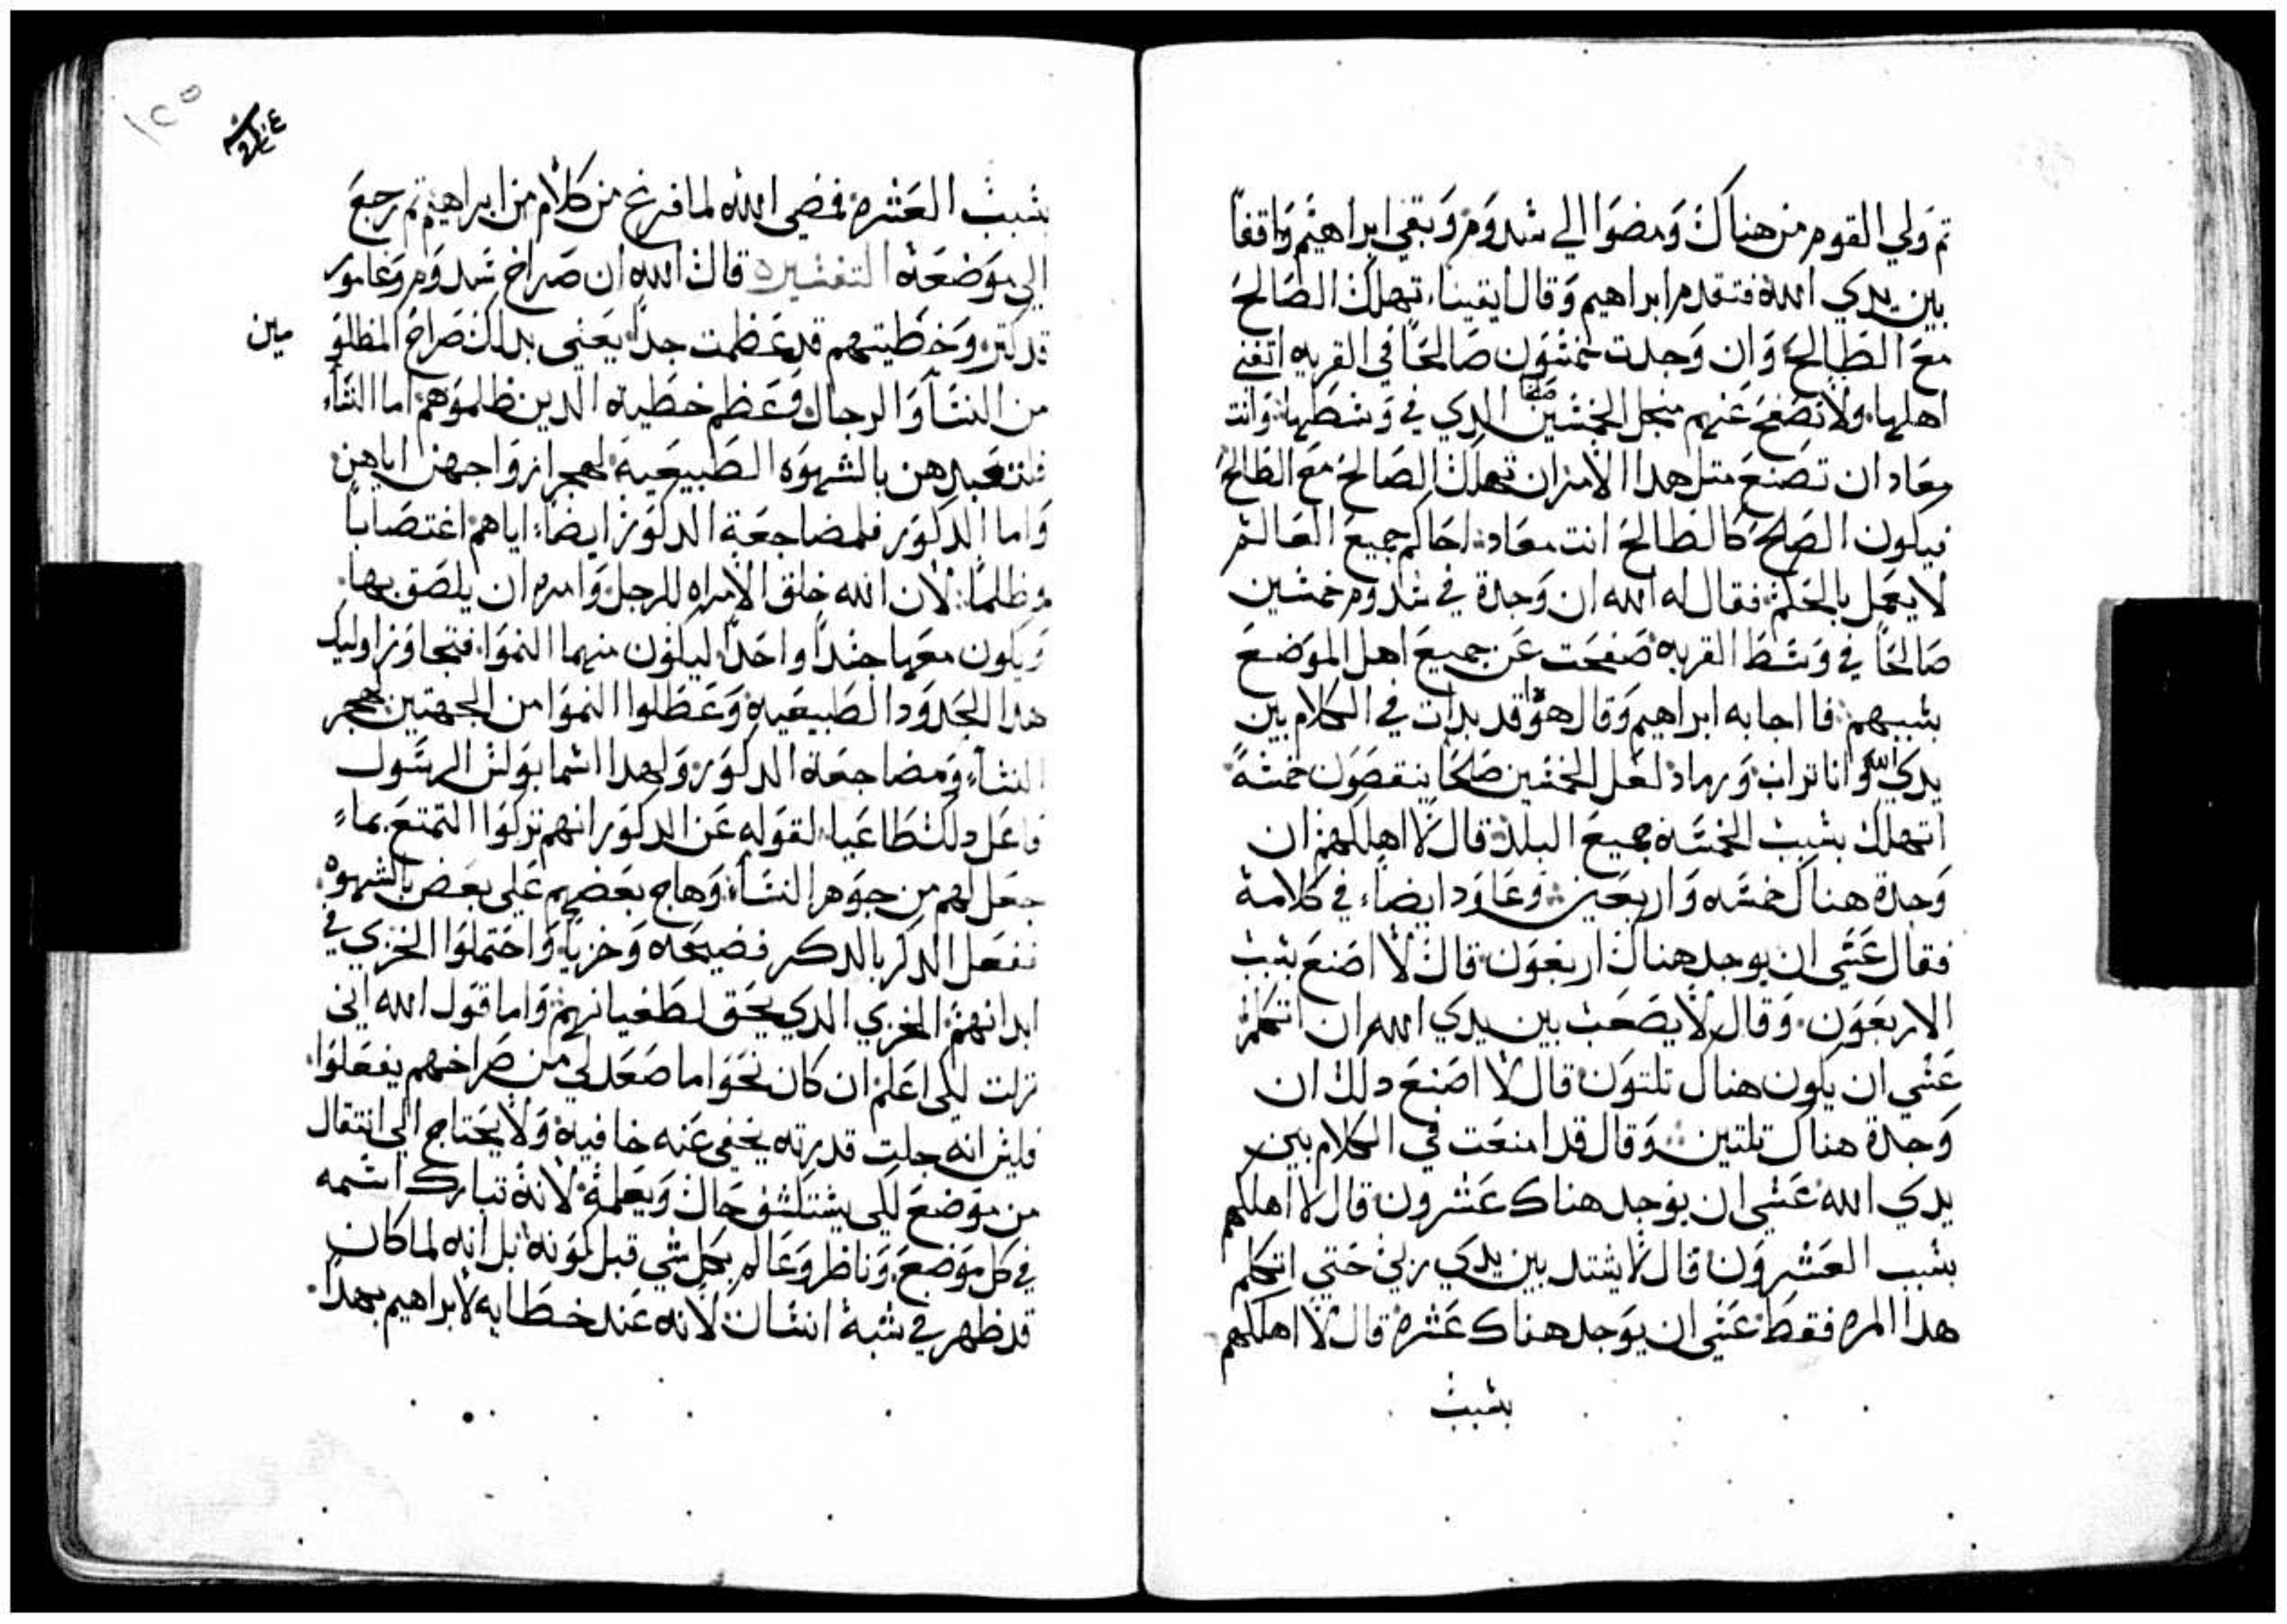 تم ولي القوم من هناك ومضوا الي شدوم وبقي ابراهيم واقفا
بين يدي الله فتقدم ابراهيم وقال ايقينا تهلك الصالح
مع الطالح وان وجدت خمشون صالحا في القريه اتفني
اهلها ولا تصفح عنهم منجل الخمشين صالحا الدي في وشطها وانت
معاد ان تصنع متل هدا الامران تهلك الصالح مع الطالح
فيكون الصالح كالطالح انت معاد احاكم جميع العالم
لا يعمل بالحكم فقال له الله ان وجدة في شدوم خمشين
صالحا في وشط القريه صفحت عن جميع اهل الموضع
بشببهم فااجابه ابراهيم وقال هودا قد بدات في الكلام بين
يدي الله وانا تراب ورماد لعل الخمشين صالحا ينقصون خمشة
اتهلك بشبب الخمشه جميع البلد قال لا اهلكهم ان
وجدة هناك خمشه واربعين وعاود ايضاء في كلامة
فقال عشي ان يوجد هناك اربعون قال لا اصنع بشبب
الاربعون وقال لا يصعب بين يدي الله ان اتكلم
عشي ان يكون هناك تلتون قال لا اصنع دلك ان
وجدة هناك تلتين وقال قد امنعت في الكلام بين
يدي الله عشي ان يوجد هناك عشرون قال لا اهلكهم
بشبب العشرون قال لا يشتد بين يدي ربي حتي اتكلم
هدا المره فقط عشي ان يوجد هناك عشره قال لا اهلكهم
بشبب
١٢٥
بشبب العشره فمضي الله لما فرغ من كلام من ابراهيم تم رجع
الي موضعه التفشيره قال الله ان صراخ شدوم وغامور
قد كتر وخطيتهم قد عظمت جدا يعني بدلك صراخ المظلو
مين
من النشا والرجال وعظم خطية الدين ظلموهم اما النشا
فلتعبدهن بالشهوه الطبيعيه لهجر ازواجهن اياهن
واما الدكور فلمضاجعة الدكور ايضا اياهم اغتصابا
وظلما لان الله خلق الامراه للرجل وامره ان يلصق بها
ويكون معها جشدا واحدا ليكون منهما النموا فتجاوز اوليك
هدا الحدود الطبيعيه وعطلوا النموا من الجهتين بهجر
النشاء ومضاجعة الدكور ولهدا اشما بولش الرشول
فاعل دلك طاغيا لقوله عن الدكور انهم تركوا التمتع بماء
جعل لهم من جوهر النشاء وهاج بعضهم علي بعض بالشهوه
ففعل الدكر بالدكر فضيحه وخزيا واحتملوا الخزي في
ابدانهم الخزي الدي يحق لطغيانهم واما قول الله اني
نزلت لكي اعلم ان كان نحوا ما صعد لي من صراخهم يفعلوا
فليش انه جلت قدرته يخفي عنه خافيه ولا يحتاج الي انتقال
من موضع لكي يشتكشف حال ويعلمة لانة تبارك اشمه
في كل موضع وناظر وعالم بكل شي قبل كونه بل انه لما كان
قد ظهر في شبة انشان لانه عند خطابه لابراهيم بهدا